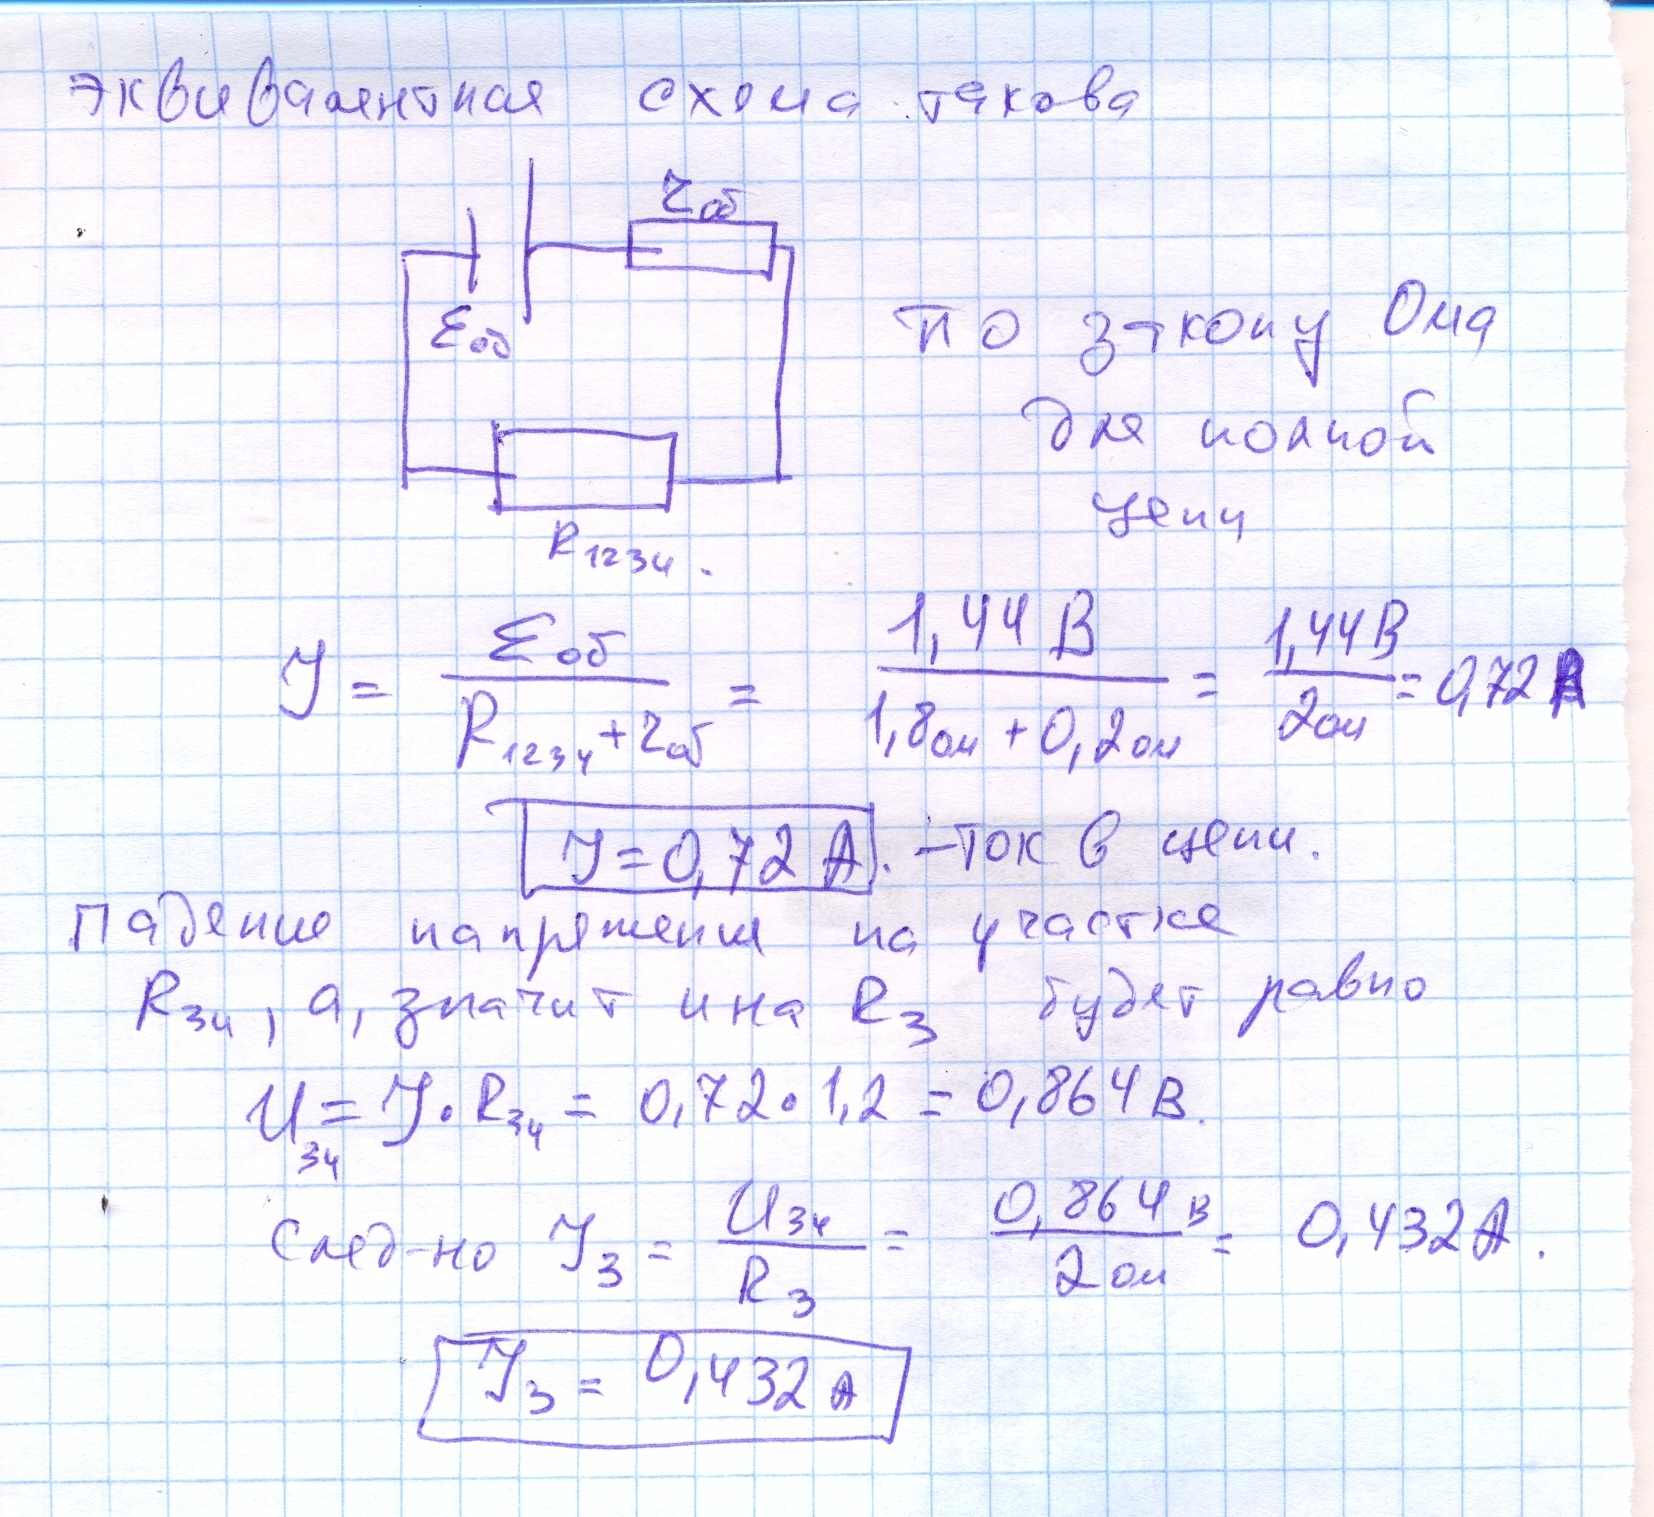 эквивалентная схема такова
rоб
Eоб
R1234.
по закону Ома
для полной
цепи
J = Eоб / (R1234 + rоб) = 1,44 В / (1,8 ом + 0,2 ом) = 1,44 В / 2 ом = 0,72 А
J = 0,72 А. – ток в цепи.
Падение напряжения на участке
R34, а, значит и на R3 будет равно
U34 = J · R34 = 0,72 · 1,2 = 0,864 В.
След-но J3 = U34 / R3 = 0,864 В / 2 ом = 0,432 А.
J3 = 0,432 А